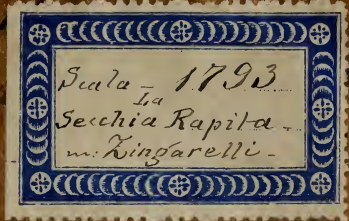 Scala - 1793
La
Secchia Rapita -
m: Zingarelli -